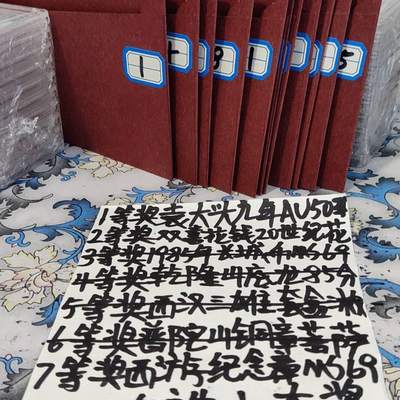 1 9 1 5
1等奖袁大头九年AU50
2等奖双喜花钱20世纪花
3等奖1985年长城币MS69
4等奖乾隆 85分
5等奖西汉三铢
6等奖普陀山铜章菩萨
7等奖西游纪念章MS69
大奖